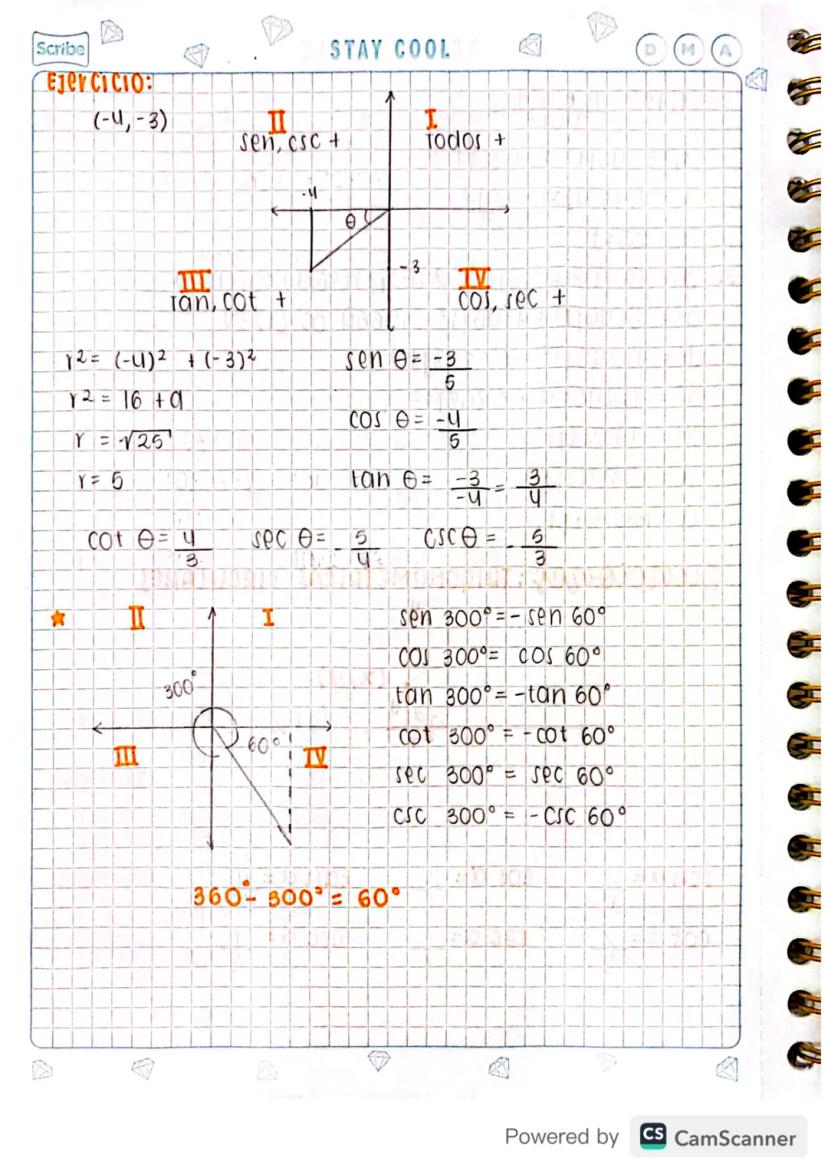 Scribe
STAY COOL
D M A
Ejercicio:
(-4, -3)
II
sen, csc +
I
Todos +
-4
θ
-3
III
Tan, cot +
IV
cos, sec +
r² = (-4)² + (-3)²
r² = 16 + 9
r = √25
r = 5
sen θ = -3/5
cos θ = -4/5
tan θ = -3/-4 = 3/4
cot θ = 4/3 sec θ = -5/4 csc θ = -5/3
II I
300°
60°
III IV
sen 300° = - sen 60°
cos 300° = cos 60°
tan 300° = -tan 60°
cot 300° = -cot 60°
sec 300° = sec 60°
csc 300° = -csc 60°
360° - 300° = 60°
Powered by CS CamScanner